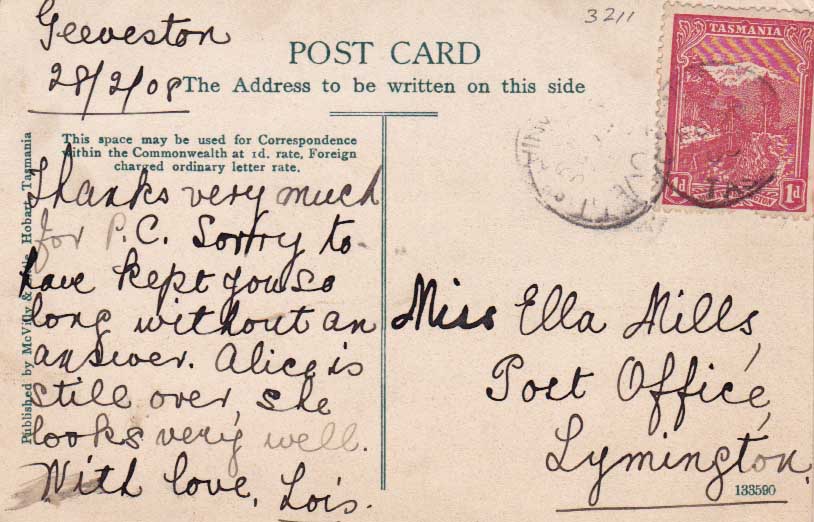 Geeveston
28/2/08
3211
POST CARD
The Address to be written on this side
This space may be used for Correspondence
within the Commonwealth at 1d. rate, Foreign
charged ordinary letter rate.
Thanks very much
for P.C. Sorry to
have kept you so
long without an
answer. Alice is
still over, she
looks very well.
With love, Lois.
Miss Ella Mills,
Post Office,
Lymington.
Published by McVilly & Hobart, Tasmania
TASMANIA
1d 1d
TAS
133590